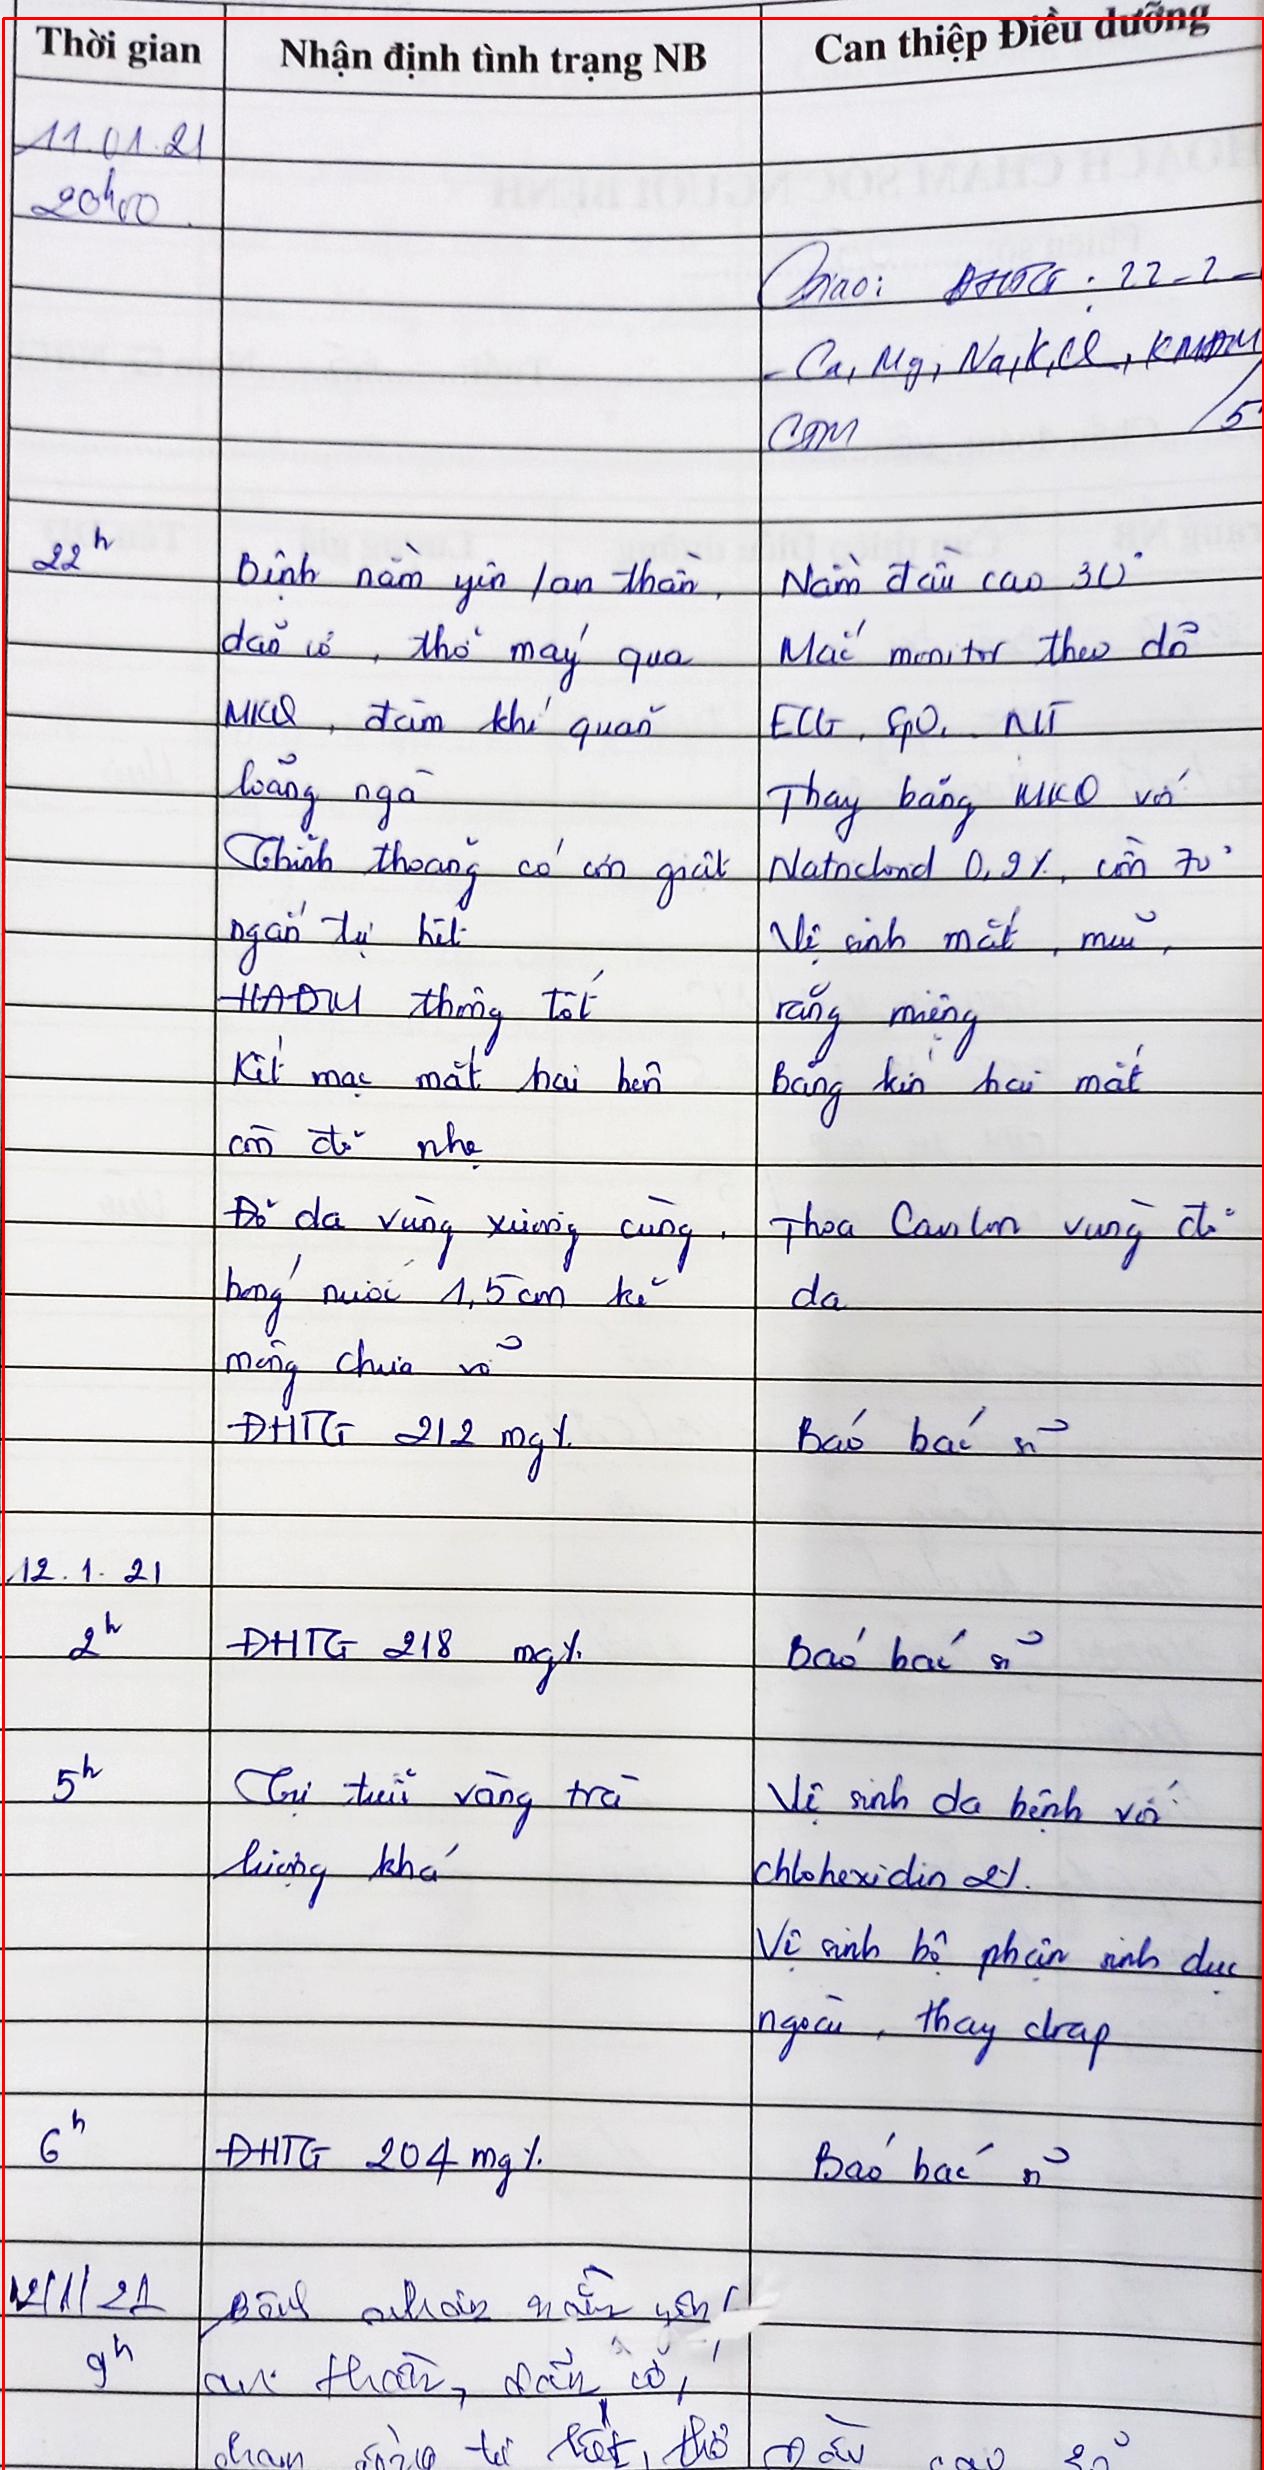 Thời gian Nhận định tình trạng NB Can thiệp Điều dưỡng
11.01.21
20h00
Giao: ĐHTG: 22-2-
- Ca, Mg, Na, K, Cl, KMĐM
CĐM /5
22h Bệnh nằm yên / an thần, Nằm đầu cao 30°
dãn cơ, thở máy qua Mắc monitor theo dõi
MKQ, đàm khí quản ECG, SpO2, NT
loãng ngà Thay băng MKQ với
Thỉnh thoảng có cơn giật Natriclorid 0,9%, cồn 70°
ngắn tự hết Vệ sinh mắt, mũi,
HAĐM thông tốt răng miệng
Kết mạc mắt hai bên Băng kín hai mắt
còn đỏ nhẹ
Đỏ da vùng xương cùng, Thoa vùng đỏ
bóng nước 1,5cm kẽ da
mông chưa vỡ
ĐHTG 212 mg% Báo bác sĩ
12.1.21
2h ĐHTG 218 mg% Báo bác sĩ
5h Tự tiểu vàng trà Vệ sinh da bệnh với
lượng khá chlohexidin 2%.
Vệ sinh bộ phận sinh dục
ngoài, thay drap
6h ĐHTG 204 mg% Báo bác sĩ
12/1/21 Bệnh nhân nằm yên/
9h an thần, dãn cơ,
thở Đầu cao 30°